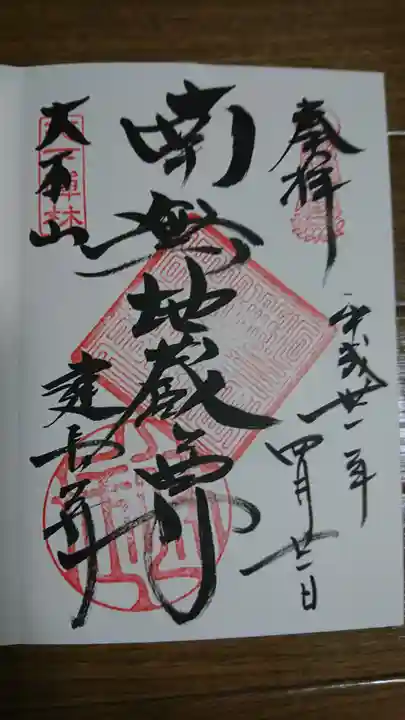 奉拝
平成卅一年
四月廿一日
南無地蔵尊
天下禅林
大本山
建長寺